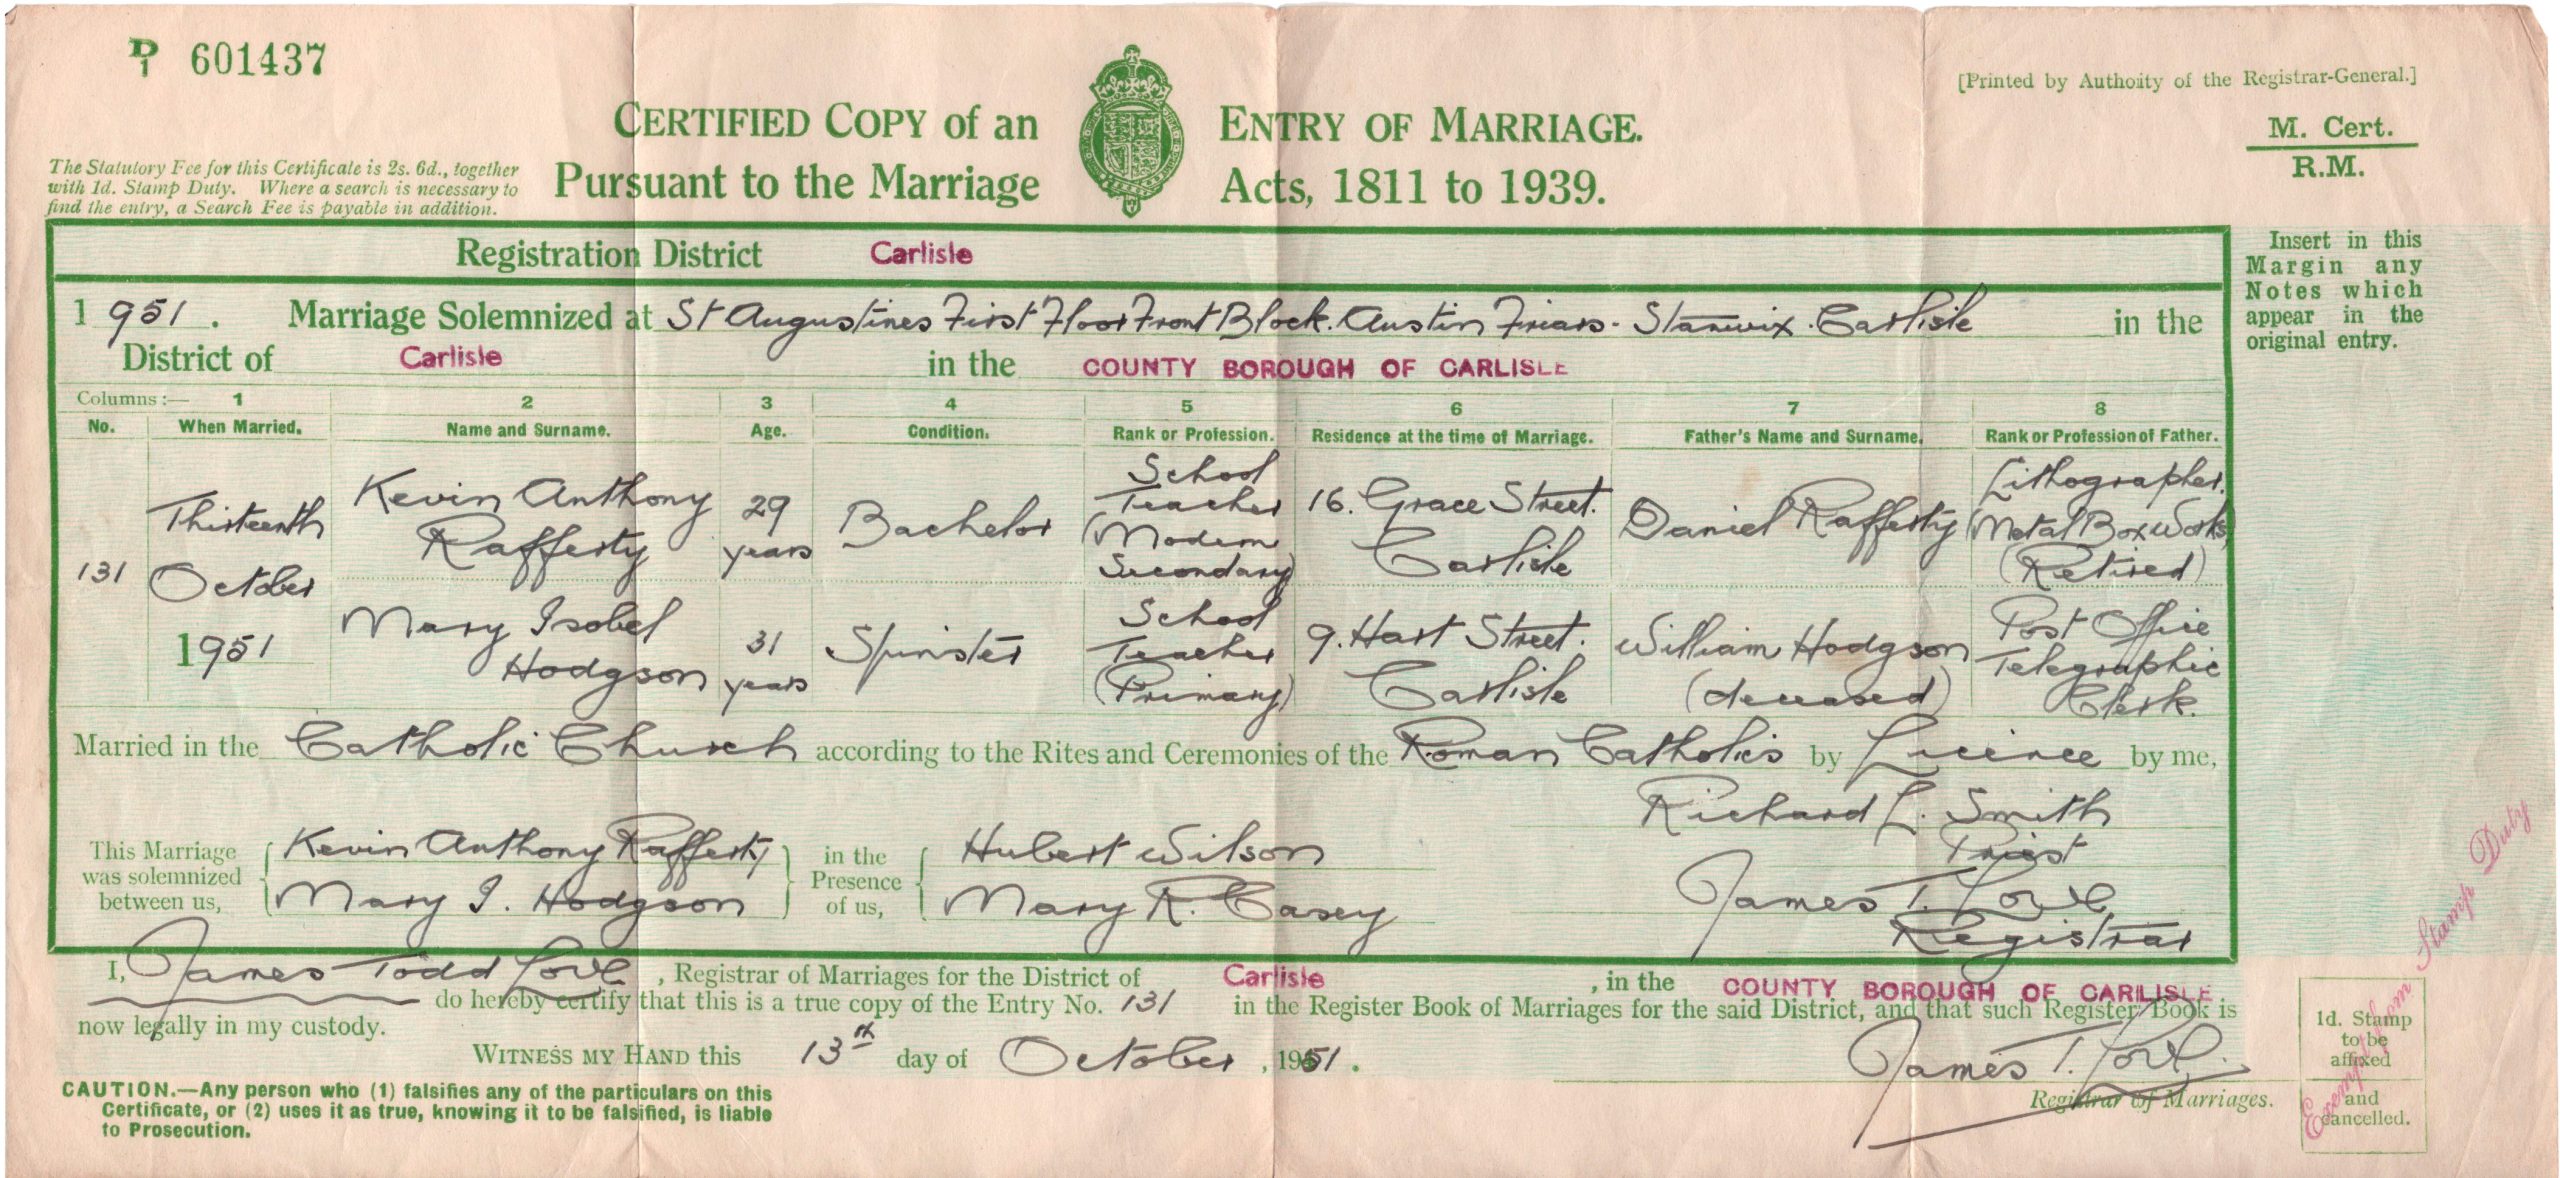 D
1 601437
[Printed by Authoity of the Registrar-General.]
CERTIFIED COPY of an ENTRY OF MARRIAGE.
Pursuant to the Marriage Acts, 1811 to 1939.
M. Cert.
R.M.
The Statutory Fee for this Certificate is 2s. 6d., together
with 1d. Stamp Duty. Where a search is necessary to
find the entry, a Search Fee is payable in addition.
Registration District Carlisle
Insert in this
Margin any
Notes which
appear in the
original entry.
1951. Marriage Solemnized at St Augustines First Floor Front Block. Austin Friars. Stanwix. Carlisle in the
District of Carlisle in the COUNTY BOROUGH OF CARLISLE
Columns :— 1 2 3 4 5 6 7 8
No. When Married. Name and Surname. Age. Condition. Rank or Profession. Residence at the time of Marriage. Father's Name and Surname. Rank or Profession of Father.
131
Thirteenth
October
1951
Kevin Anthony
Rafferty
29
years
Bachelor
School
Teacher
(Modern
Secondary)
16. Grace Street.
Carlisle
Daniel Rafferty
Lithographer.
(Metal Box Works)
(Retired)
Mary Isobel
Hodgson
31
years
Spinster
School
Teacher
(Primary)
9. Hart Street.
Carlisle
William Hodgson
(deceased)
Post Office
Telegraphic
Clerk.
Married in the Catholic Church according to the Rites and Ceremonies of the Roman Catholics by Licence by me,
Richard L. Smith
Priest
James T. Love
Registrar
This Marriage
was solemnized
between us,
Kevin Anthony Rafferty
Mary I. Hodgson
in the
Presence
of us,
Hubert Wilson
Mary K. Casey
I, James Todd Love, Registrar of Marriages for the District of Carlisle, in the COUNTY BOROUGH OF CARLISLE
do hereby certify that this is a true copy of the Entry No. 131 in the Register Book of Marriages for the said District, and that such Register Book is
now legally in my custody.
WITNESS MY HAND this 13th day of October, 1951.
James T. Love
Registrar of Marriages.
CAUTION.—Any person who (1) falsifies any of the particulars on this
Certificate, or (2) uses it as true, knowing it to be falsified, is liable
to Prosecution.
1d. Stamp
to be
affixed
and
cancelled.
Exempt from Stamp Duty